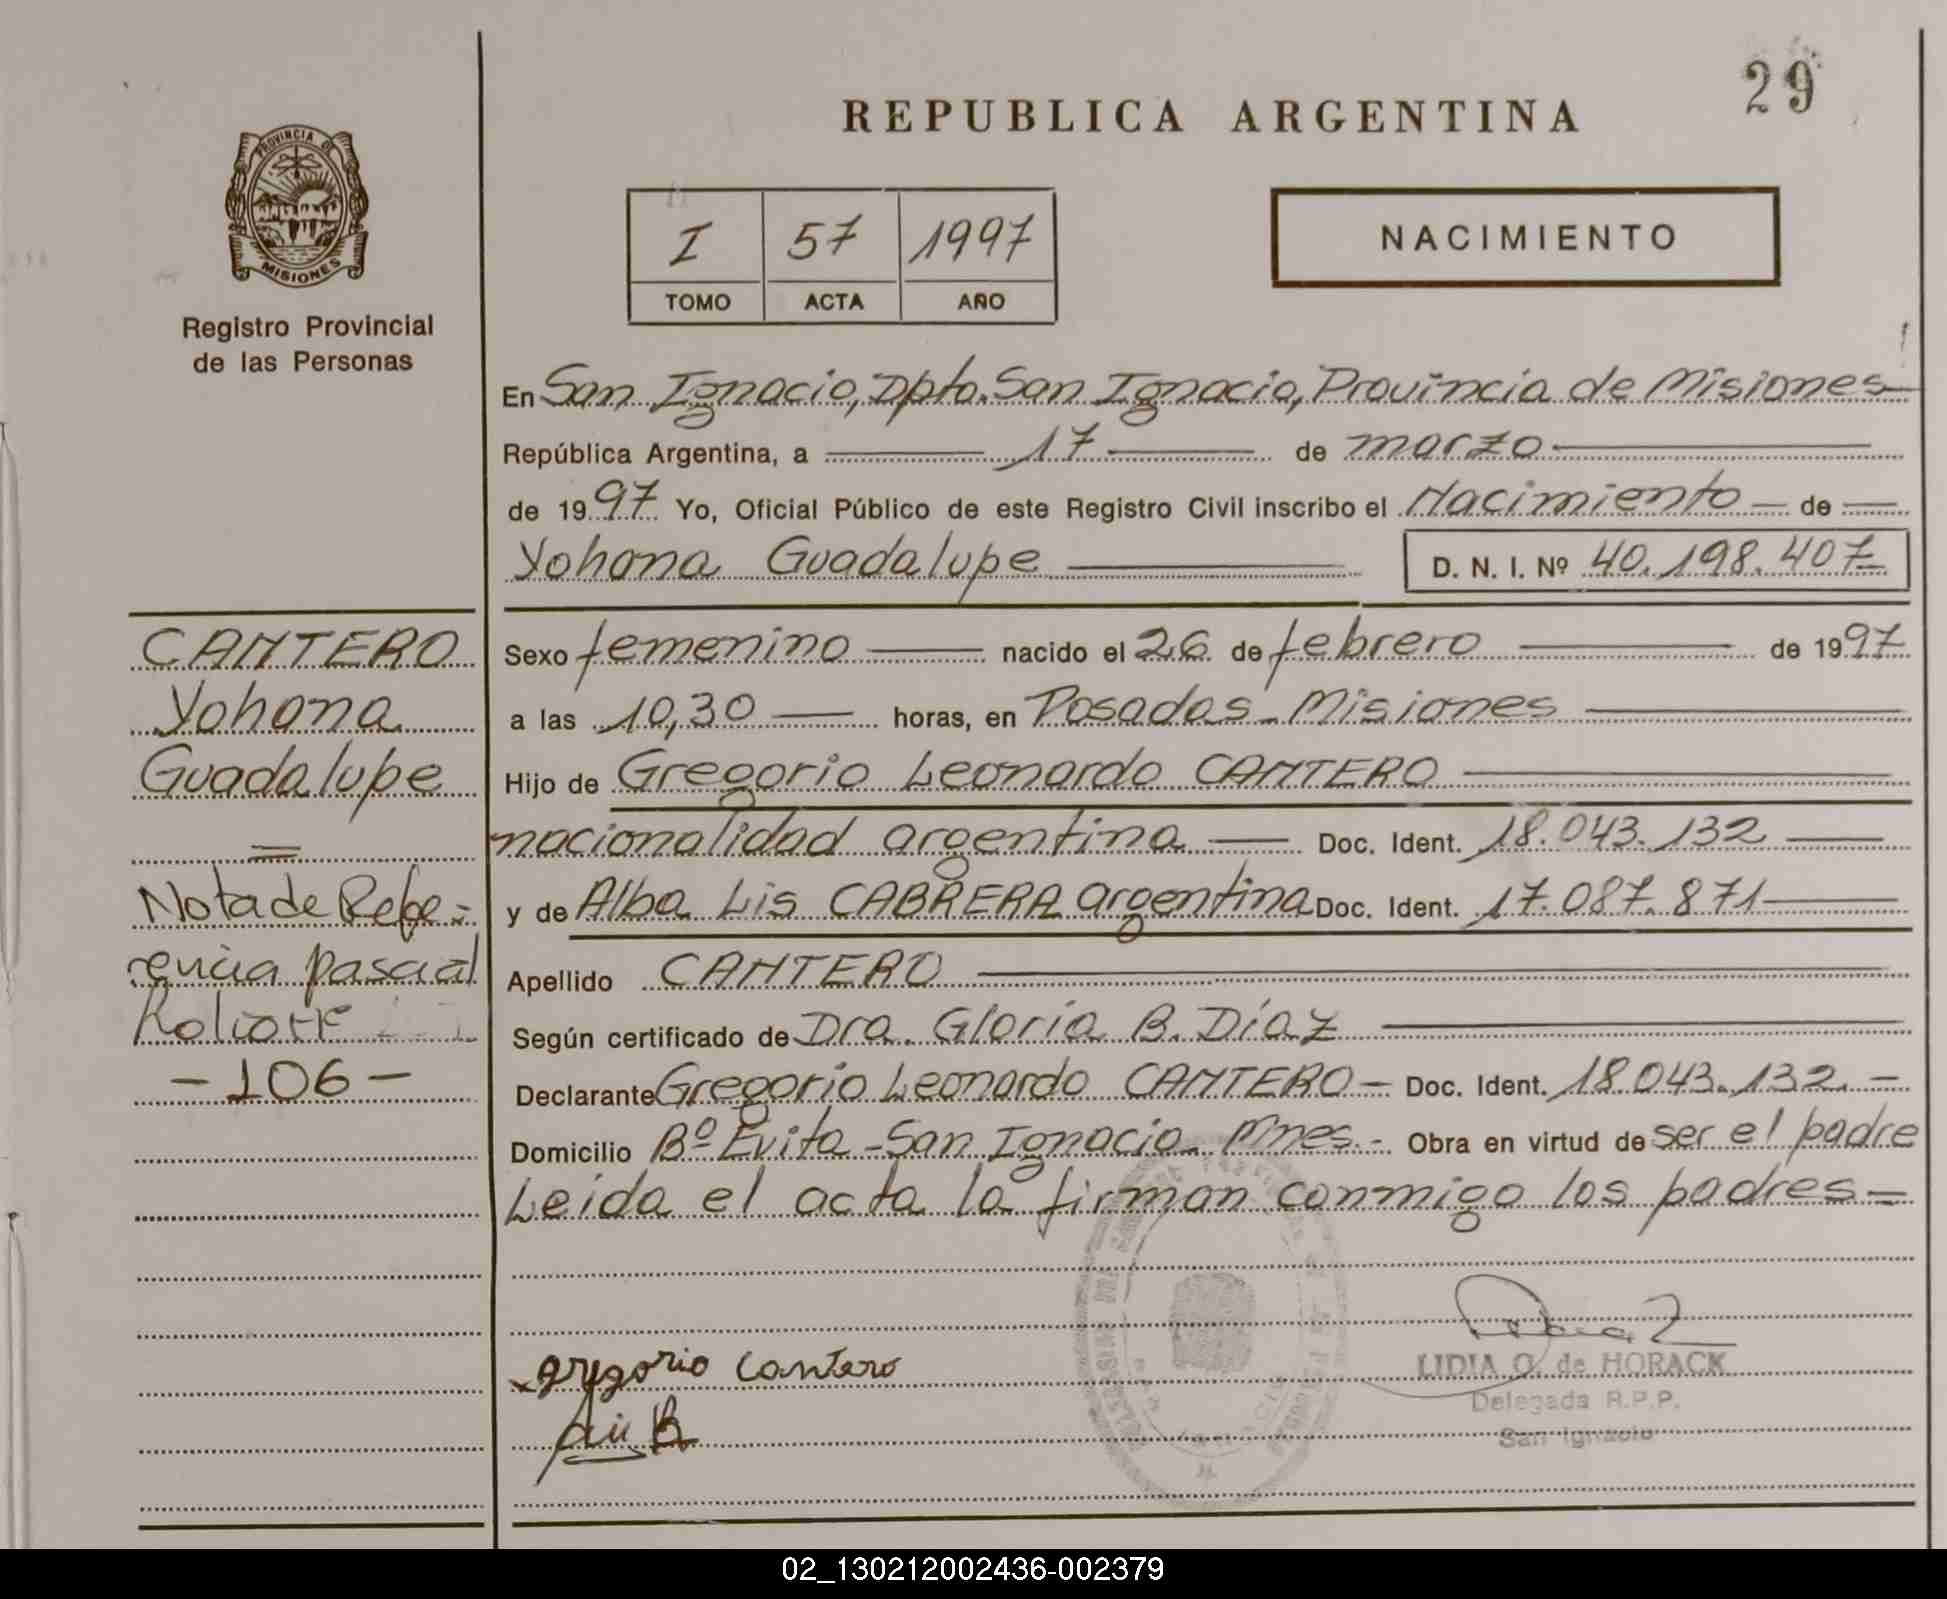 29
REPUBLICA ARGENTINA
PROVINCIA DE
MISIONES
Registro Provincial
de las Personas
I 57 1997
TOMO ACTA AÑO
NACIMIENTO
En San Ignacio, Dpto. San Ignacio, Provincia de Misiones
República Argentina, a 17 de marzo
de 1997 Yo, Oficial Público de este Registro Civil inscribo el Nacimiento de
Yohana Guadalupe
D. N. I. Nº 40.198.407
CANTERO
Yohana
Guadalupe
Nota de Refe-
rencia pascual
-106-
Sexo femenino nacido el 26 de febrero de 1997
a las 10,30 horas, en Posadas - Misiones
Hijo de Gregorio Leonardo CANTERO
nacionalidad argentina Doc. Ident. 18.043.132
y de Alba Lis CABRERA argentina Doc. Ident. 17.087.871
Apellido CANTERO
Según certificado de Dra. Gloria B. Díaz
Declarante Gregorio Leonardo CANTERO - Doc. Ident. 18.043.132. -
Domicilio Bº Evita - San Ignacio - Mnes. - Obra en virtud de ser el padre
Leida el acta la firman conmigo los padres =
gregorio Cantero
LIDIA O. de HORACK
Delegada R.P.P.
San Ignacio
02_130212002436-002379